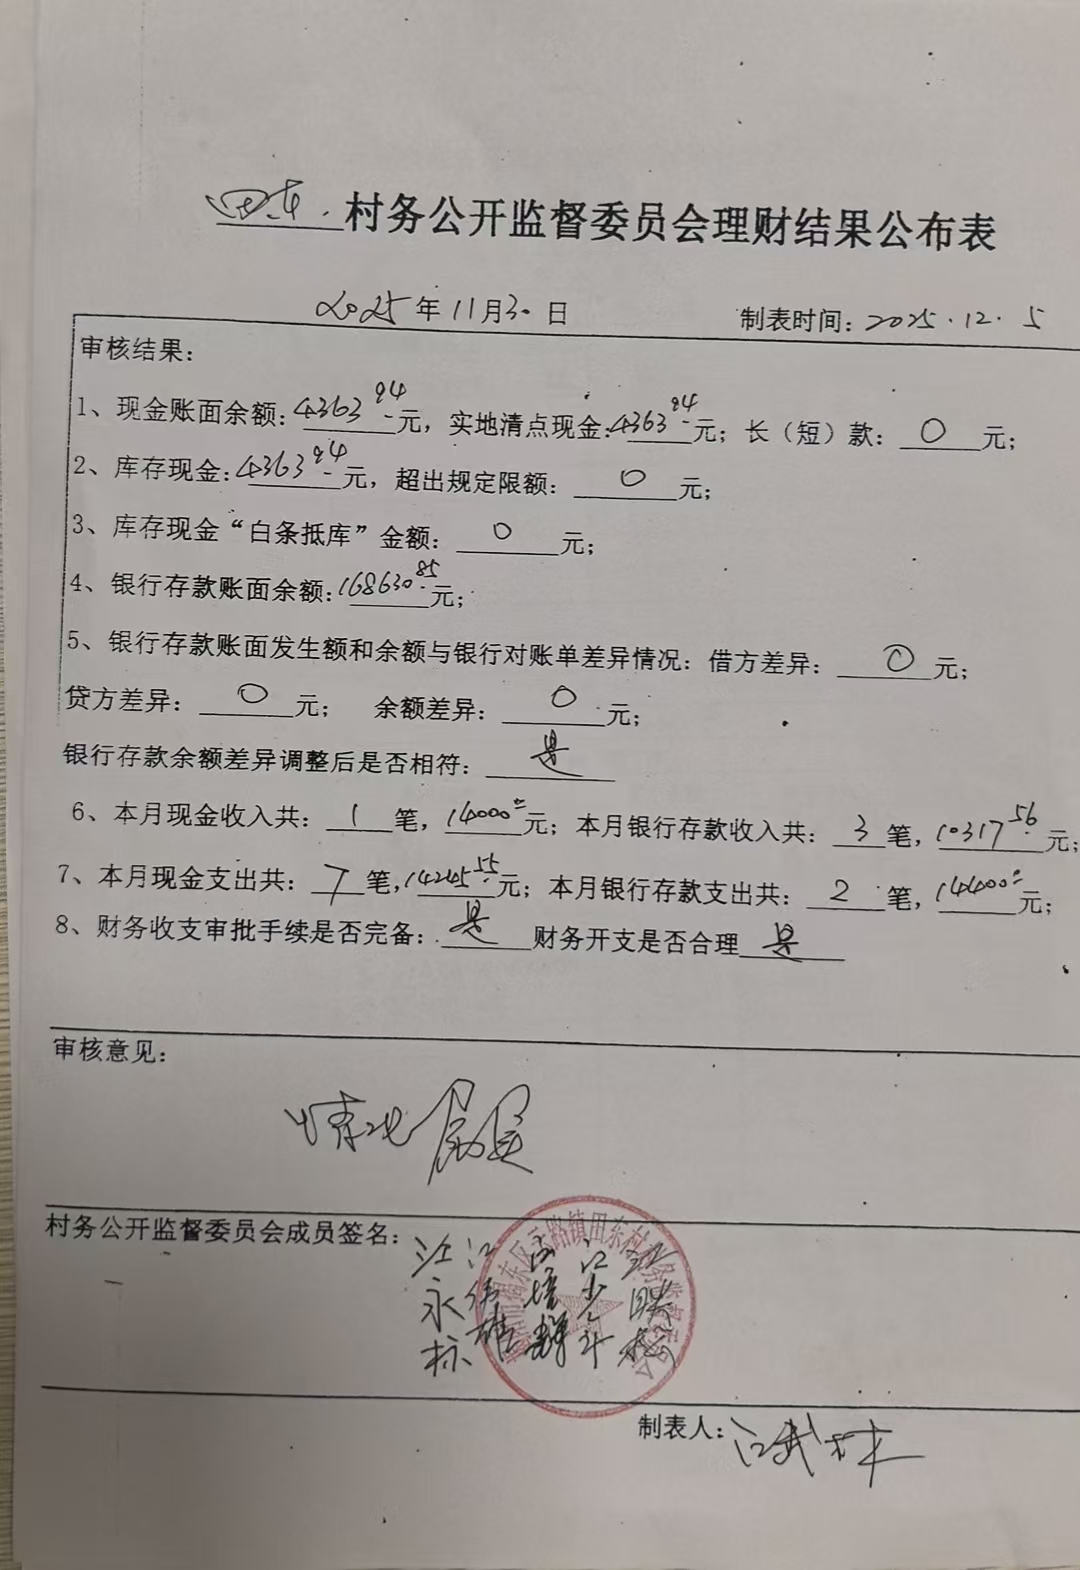 田东 村务公开监督委员会理财结果公布表
2025年11月30日 制表时间：2025.12.5
审核结果：
1、现金账面余额：4363.94元，实地清点现金：4363.94元；长（短）款：0元；
2、库存现金：4363.94元，超出规定限额：0元；
3、库存现金“白条抵库”金额：0元；
4、银行存款账面余额：168630.85元；
5、银行存款账面发生额和余额与银行对账单差异情况：借方差异：0元；
贷方差异：0元； 余额差异：0元；
银行存款余额差异调整后是否相符：是
6、本月现金收入共：1笔，14000元；本月银行存款收入共：3笔，10317.56元；
7、本月现金支出共：7笔，14245.55元；本月银行存款支出共：2笔，14400元；
8、财务收支审批手续是否完备：是 财务开支是否合理 是
审核意见：
情况属实
村务公开监督委员会成员签名：
江永标 江伟雄 江培群 江少斗
区云路镇田东村务监督委员会
制表人：江武林